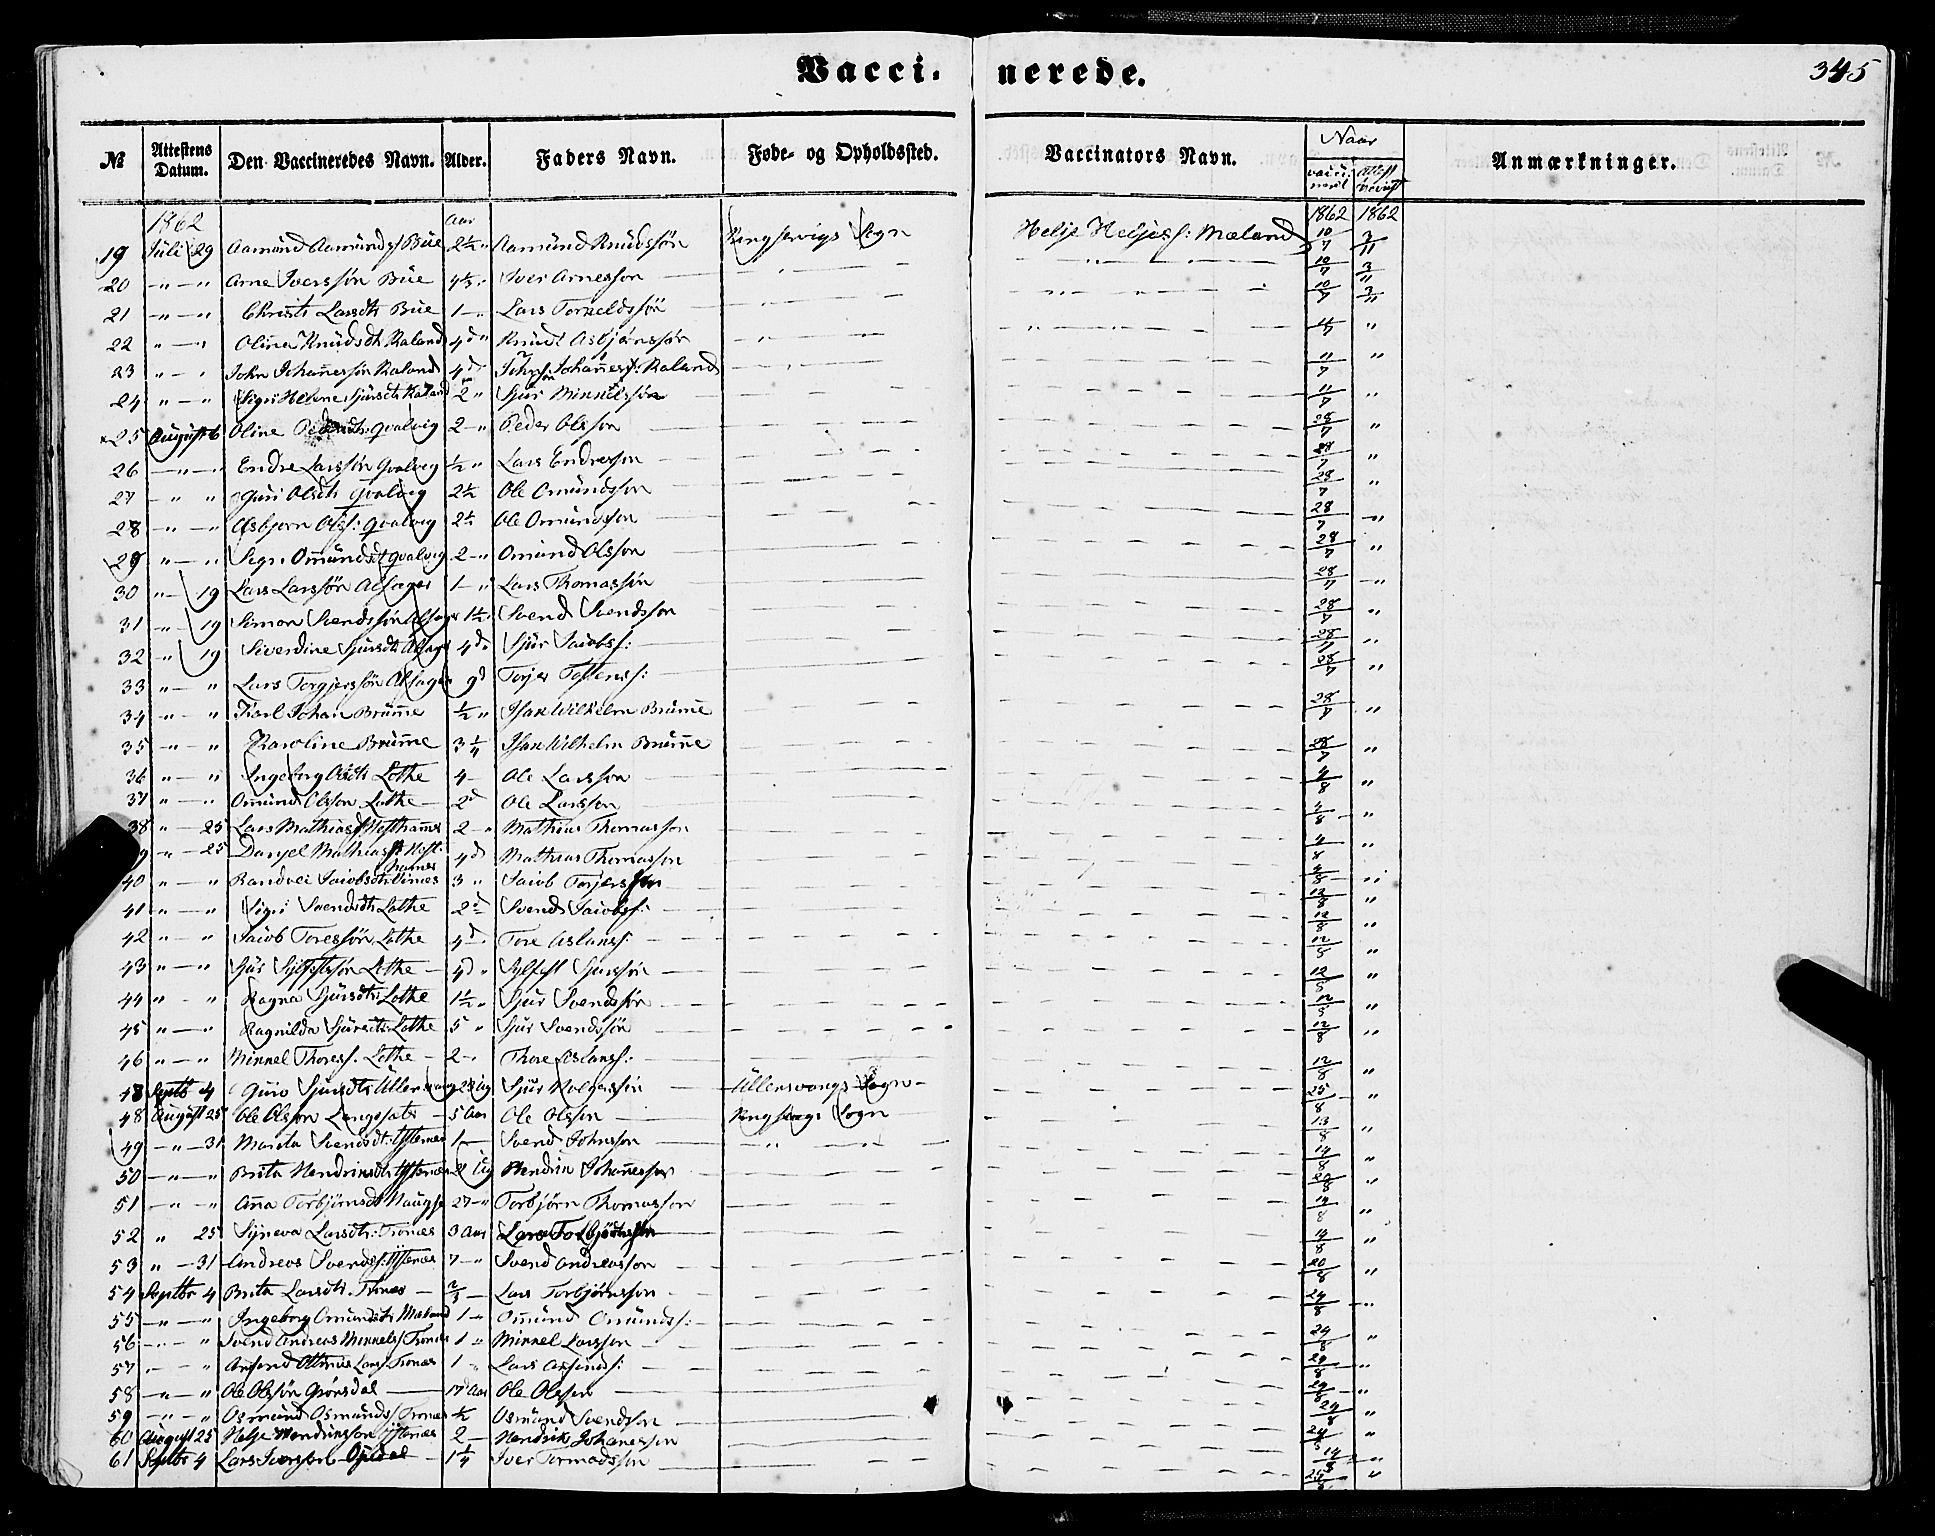 Vaccinerede.
345
№ Attestens Datum. Den Vaccineredes Navn. Alder. Faders Navn. Føde- og Opholdssted. Vaccinators Navn. Naar Anmærkninger.
1862 Aar 1862 1862
19 Juli 29 Aamund Aamunds. Büe 2½ " Aamund Knudssøn Kingservigs Sogn Helje Heljes: Mæland 10/7 3/11
20 " — " Arne Iverssøn Büe Iver Arnesson 10/7 3/11
21 " — " Christi Larsdtr Büe 1 — Lars 10/7 3/11
22 " — " Olina Knudsdtr Raland 4 d " Knud Asbjørnssøn 11/7 "
23 " — " John Johannessøn Raland 4 d Raland 11/7 "
24 " — " Sigri Helene Sjursdtr Raland 2 " Sjur Minnelssøn 11/7 "
25 August 6 Oline Pedersdtr Qvalvig 2 — " Peder Olsson 28/7 "
26 " — " Endre Larssøn Qvalvig ½ " Lars Endresson 28/7 "
27 " " Guri Olsdtr Qvalvig 2½ Ole Omundsson 28/7 "
28 " — " Asbjørn Ols: Qvalvig 2½ Ole Omundsson 28/7 "
29 " — " Segri Omundsdt Qvalvig 2 — " Omund Olsson 28/7 "
30 " — 19 Lars Larssøn Alsager 1 — " Lars Thomassøn 28/7 "
31 " 19 Simon Svendssøn Alsager 1½ Svend Svendsson 28/7 "
32 " 19 Siverdine Sjursdtr Alsager 4 d " Sjur Jacobs: 28/7 "
33 " — " Lars Torgjerssøn Alsager 9 d Torjer 28/7 "
34 " — " Karl Johan Brumme ½ " Isak Wilhelm Brumme 28/7 "
35 " — " Karoline Brumme 3¼ Isak Wilhelm Brumme 28/7 "
36 " — " Ingeborg Olsdtr Lothe 4 — Ole Larsson 4/8 "
37 " — " Omund Olsson Lothe — 2 d Ole Larsson 4/8 "
38 " — 25 Lars Mathias. Hesthamer 2 — " Mathias Thomasson 4/8 "
9 " — 25 Danjel Mathias. Hest-hamer 4 d Mathias Thomasson 4/8 "
40 " — " Randvei Jacobsdtr 3 " Jacob Torjersson 12/8 "
41 " — " Sigri Svendsdtr Lothe 2 d Svend Jacobs: 12/8 "
42 " — " Jacob Toressøn Lothe 4 d Tore Aslans: 12/8 "
43 " — " Sjur Sylfestssøn Lothe — 4 d " Sylfest Sjurssøn 12/8 "
44 " " Ragna Sjursdtr Lothe 1½ " Sjur Svendssøn 12/8 "
45 " — " Ragnilda Sjursdtr Lothe 5 " Sjur Svendssøn 12/8 "
46 " — " Minnel Thores. Lothe — 2 — Thore Aslans: 12/8 "
48 Septb 4 Guro Sjursdtr Ullensvang Sjur Ullensvangs Sogn — 25/8 "
48 August 25 Ole Olsson Langesæter — 5 Aar Ole Olsson Kingservigs Sogn 13/8 "
49 " — 31 Marita Svendsdt: Ystenæs 1 — Svend Johnsson 14/8 "
50 " — " Brita Hendriksdtr Ystenæs Hendrik Johannesson 20/8 "
51 " — " Anna Torbjørnsdt 27 — " Torbjørn Thomasson 14/8 "
52 " 25 Synneva Larsdtr: Tronæs 3 Aar Lars Torbjørnsson 14/8 "
53 " — 31 Andreas Svends: Ystenæs 7 — " Svend Andreasson 20/8 "
54 Septbr 4 Brita Larsdtr Tronæs — Lars Torbjørnsson 24/8 "
55 " — " Ingeborg Omundsdtr Mæland 1 — " Omund Omunds: 24/8 "
56 " — " Svend Andreas Minnels. Tronæs 1 " Minnel Larsson 24/8 "
57 " — " Lars. Tronæs 1 " Lars 24/8 "
58 — " — " Ole Olssøn Grønsdal 17 Aar Ole Olsson 24/8 "
59 — " — " Osmund Osmunds. Tronæs ½ Osmund Svendsson 24/8 "
60 August 25 Helje Hendriksson Ystenæs 2 — Hendrik Johannesson 14/8 "
61 Septbr 4 Lars Iversson Opedal — 1¼ Iver Tormodsson 25/8 "